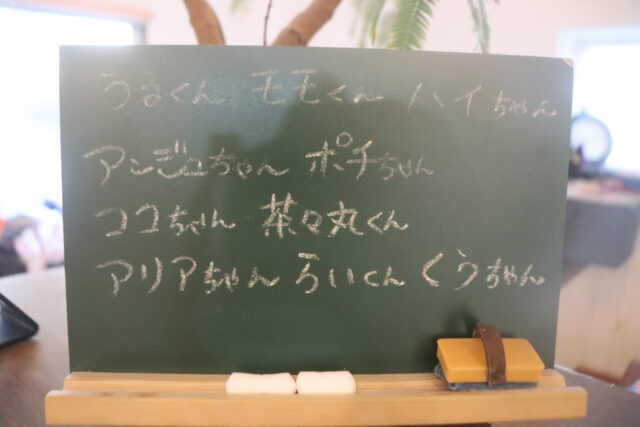 うるくん モモくん ハイちゃん
アンジュちゃん ポチちゃん
ココちゃん 茶々丸くん
アリアちゃん ろいくん くうちゃん